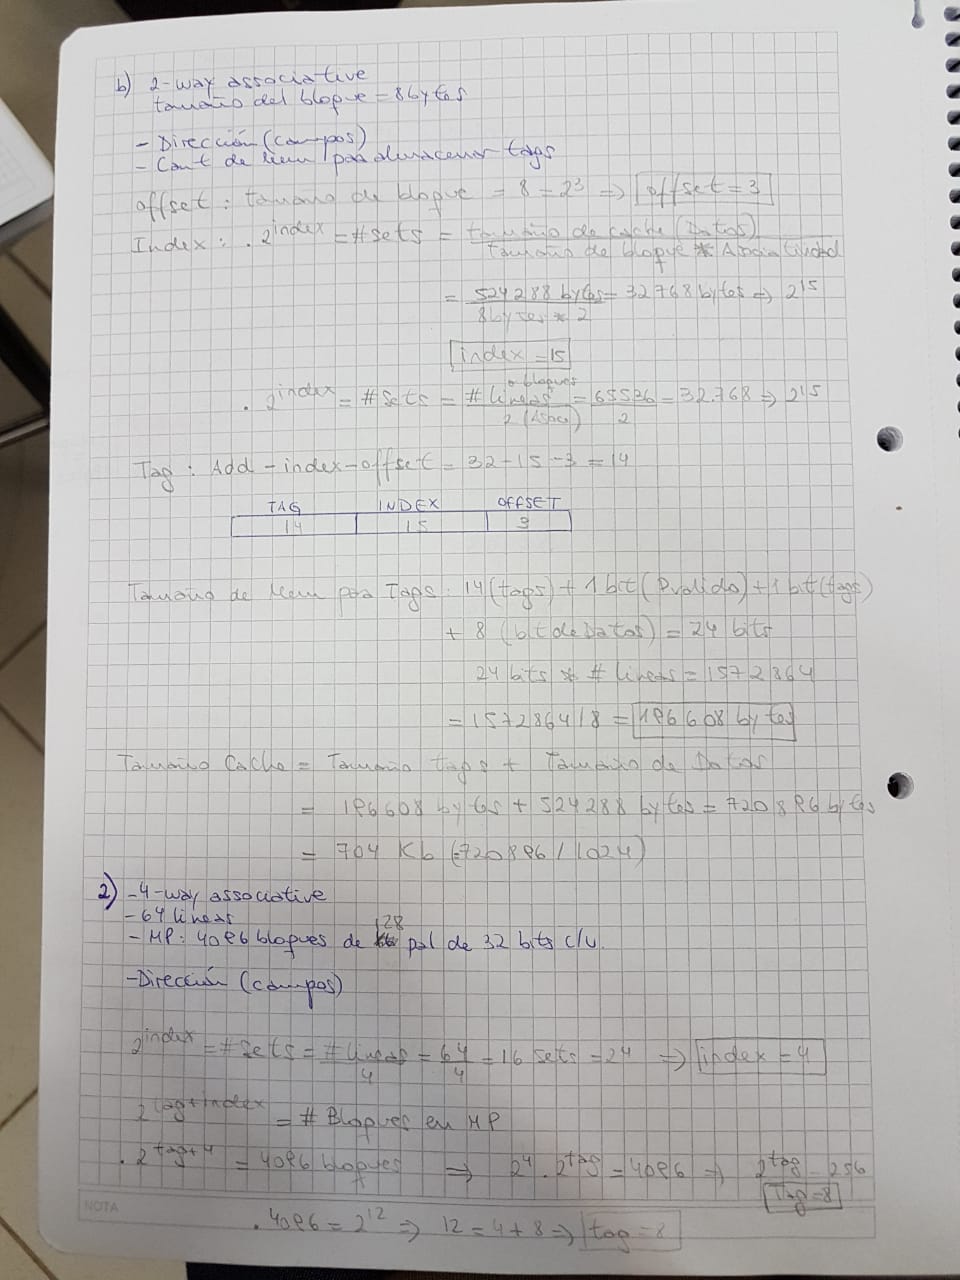 b) 2-way associative
tamaño del bloque = 8bytes
- Dirección (campos)
- Cant de Mem para almacenar tags
offset : tamaño de bloque = 8 = 2³ ⇒ offset = 3
Index : . 2^index = # sets = tamaño de cache (Datos) / tamaño de bloque * Asociatividad
= 524288 bytes / 8bytes * 2 = 32768 bytes ⇒ 2^15
index = 15
. 2^index = # sets = # lineas o bloques / 2 (Asoc) = 65536 / 2 = 32.768 ⇒ 2^15
Tag : Add - index - offset = 32 - 15 - 3 = 14
TAG INDEX OFFSET
14 15 3
Tamaño de Mem para Tags : 14 (tags) + 1 bit (B valido) + 1 bit (tags)
+ 8 (bit de Datos) = 24 bits
24 bits * # lineas = 1572864
= 1572864 / 8 = 196608 bytes
Tamaño Cache = Tamaño tags + Tamaño de Datos
= 196608 bytes + 524288 bytes = 720896 bytes
= 704 Kb (=720896 / 1024)
2) - 4-way associative
- 64 lineas
- MP: 4096 bloques de 128 pal de 32 bits c/u.
- Dirección (campos)
2^index = # sets = # lineas / 4 = 64 / 4 = 16 sets = 2^4 ⇒ index = 4
2^tag+index = # Bloques en MP
. 2^tag+4 = 4096 bloques ⇒ 2^4 . 2^tag = 4096 ⇒ 2^tag = 256
Tag = 8
NOTA
. 4096 = 2^12 ⇒ 12 = 4 + 8 ⇒ tag = 8